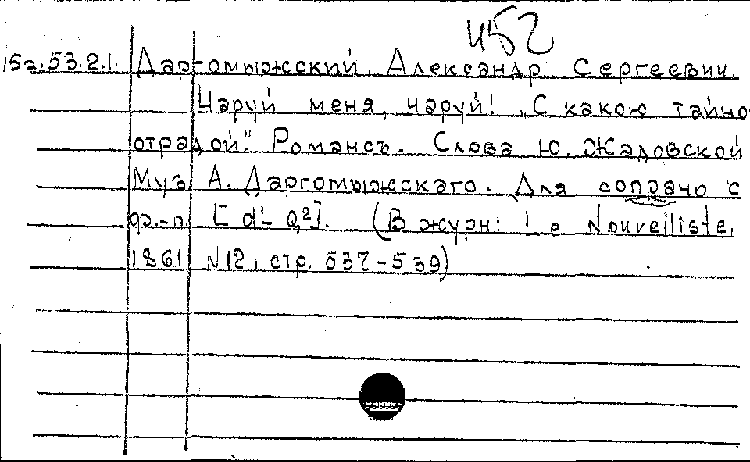 452
15а.53.2.1. Даргомыжский, Александр Сергеевич.
Чаруй меня, чаруй! „С какою тайно
отрадой." Романсъ. Слова Ю. Жадовской
Муз. А. Даргомыжскаго. Для сопрано с
фо.-п. [ d¹-
(В журн: Le Nouvelliste,
1861 N12, стр. 537-539)